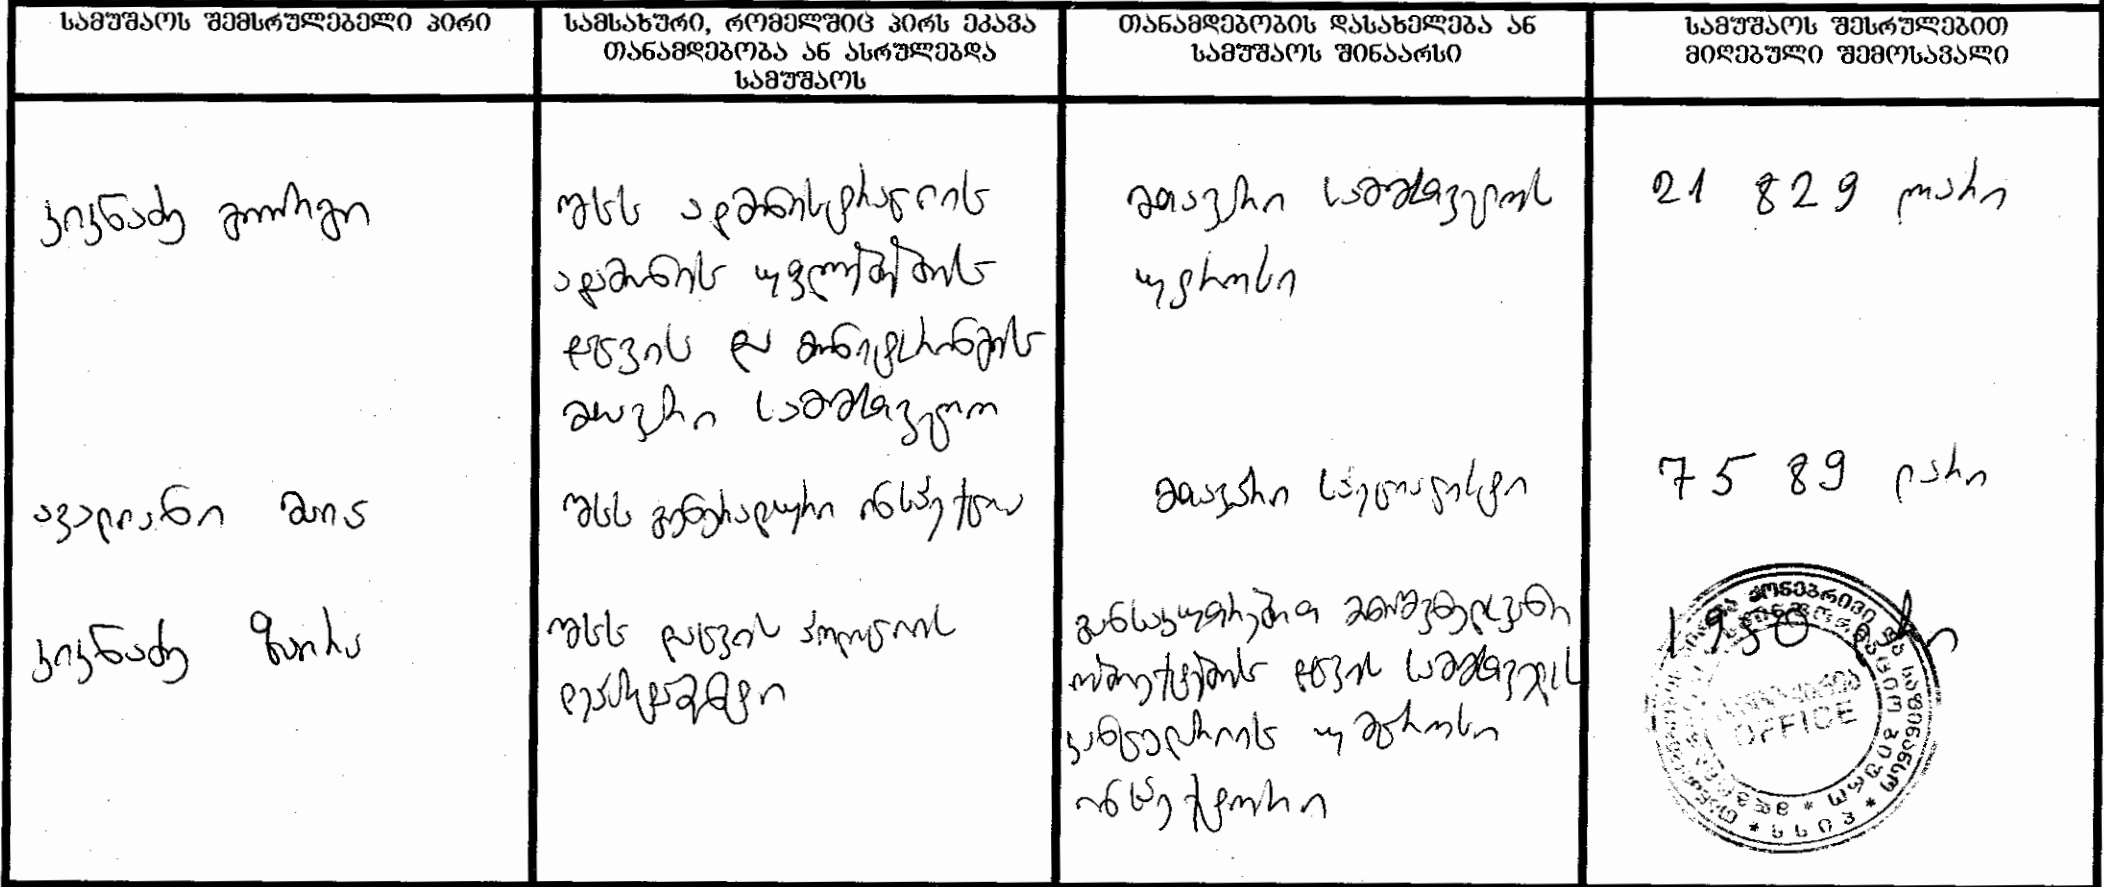 სამუშაოს შემსრულებელი პირი
სამსახური, რომელშიც პირს ეკავა
თანამდებობა ან ასრულებდა
სამუშაოს
თანამდებობის დასახელება ან
სამუშაოს შინაარსი
სამუშაოს შესრულებით
მიღებული შემოსავალი
კიკნაძე გიორგი
შსს ადმინისტრაციის
ადამიანის უფლებების
დაცვის და მონიტორინგის
მთავარი სამმართველო
მთავარი სამმართველოს
უფროსი
21 829 ლარი
ავალიანი მაია
შსს გენერალური ინსპექცია
მთავარი სპეციალისტი
7589 ლარი
კიკნაძე ზაირა
შსს დაცვის პოლიციის
დეპარტამენტი
განსაკუთრებით მნიშვნელოვანი
ობიექტების დაცვის სამმართველოს
კანცელარიის უმცროსი
ინსპექტორი
OFFICE